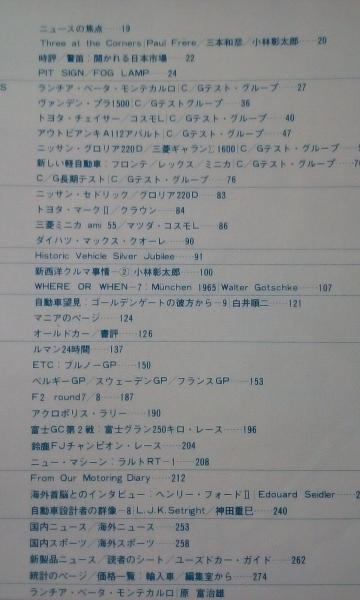 ニュースの焦点……19
Three at the Corners│Paul Frère／三本和彦／小林彰太郎……20
時評／警笛：開かれる日本市場……22
PIT SIGN／FOG LAMP……24
S
ランチア・ベータ・モンテカルロ│C／Gテスト・グループ……27
ヴァンデン・プラ1500│C／Gテストグループ……36
トヨタ・チェイサー／コスモL│C／Gテスト・グループ……40
アウトビアンキA112アバルト│C／Gテスト・グループ……47
ニッサン・グロリア220D／三菱ギャランΣ1600│C／Gテスト・グループ……
新しい軽自動車：フロンテ／レックス／ミニカ│C／Gテスト・グループ……7
C／G長期テスト│C／Gテスト・グループ……76
ニッサン・セドリック／グロリア220D……83
トヨタ・マークII／クラウン……84
三菱ミニカ ami 55／マツダ・コスモL……86
ダイハツ・マックス・クオーレ……90
Historic Vehicle Silver Jubilee……91
新西洋クルマ事情―②│小林彰太郎……100
WHERE OR WHEN―7：München 1965│Walter Gotschke……107
自動車望見：ゴールデンゲートの彼方から―9│白井順二……121
マニアのページ……124
オールドカー／書評……126
ルマン24時間……137
ETC：ブルノーGP……150
ベルギーGP／スウェーデンGP／フランスGP……153
F2 round7／8……187
アクロポリス・ラリー……190
富士GC第2戦：富士グラン250キロ・レース……196
鈴鹿FJチャンピオン・レース……204
ニュー・マシーン：ラルトRT-1……208
From Our Motoring Diary……212
海外首脳とのインタビュー：ヘンリー・フォードII│Edouard Seidler……2
自動車設計者の群像―8│L.J.K.Setright／神田重巳……240
国内ニュース／海外ニュース……253
国内スポーツ／海外スポーツ……258
新製品ニュース／読者のシート／ユーズドカー・ガイド……262
統計のページ／価格一覧：輸入車／編集室から……274
ランチア・ベータ・モンテカルロ│原 富治雄